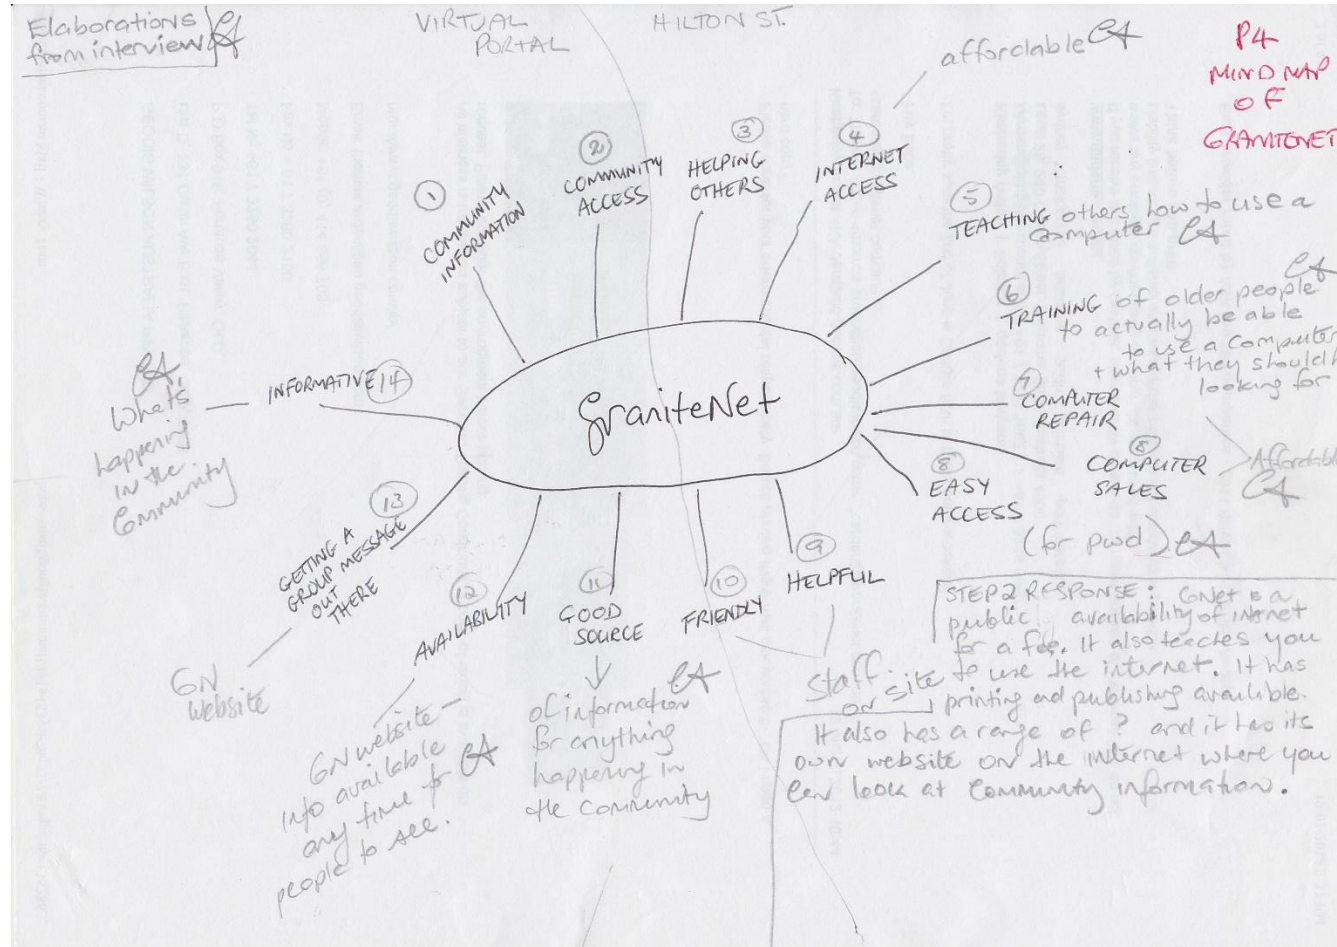 Elaborations
from interview
VIRTUAL
PORTAL
HILTON ST.
P4
MIND MAP
OF
GRANITENET
GraniteNet
①
COMMUNITY
INFORMATION
②
COMMUNITY
ACCESS
③
HELPING
OTHERS
④
INTERNET
ACCESS
affordable
⑤
TEACHING others how to use a
computer
⑥
TRAINING of older people
to actually be able
to use a computer
+ what they should
looking for
⑦
COMPUTER
REPAIR
⑧
COMPUTER
SALES
Affordable
⑧
EASY
ACCESS
(for pwd)
⑨
HELPFUL
⑩
FRIENDLY
Staff
on site
⑪
GOOD
SOURCE
of information
for anything
happening in
the Community
⑫
AVAILABILITY
GN website –
info available
any time for
people to see.
⑬
GETTING A
GROUP MESSAGE
OUT
THERE
GN
website
INFORMATIVE ⑭
What's
happening
in the
Community
STEP 2 RESPONSE: GNet is a
public availability of internet
for a fee. It also teaches you
to use the internet. It has
printing and publishing available.
It also has a range of ? and it has its
own website on the internet where you
can look at Community information.